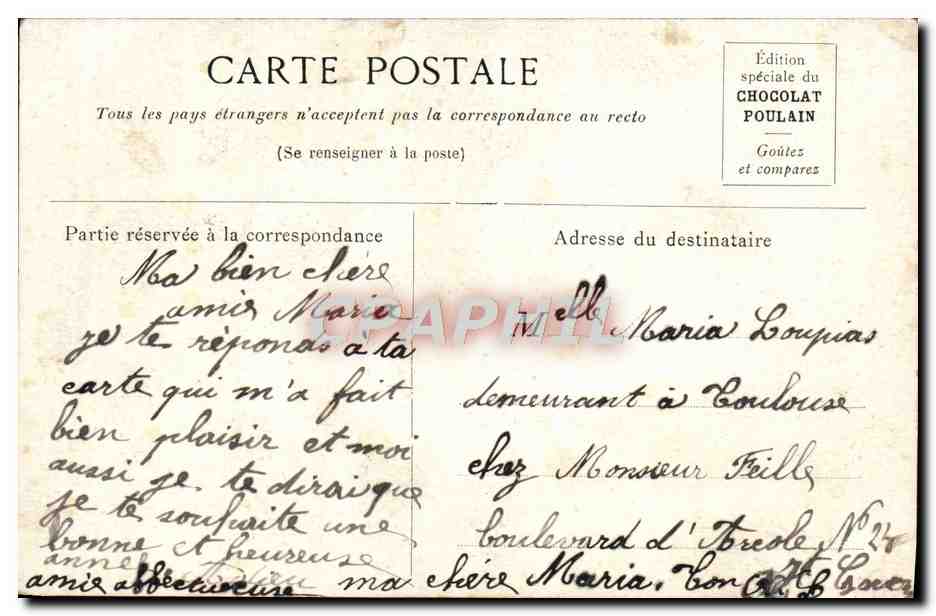 CARTE POSTALE
Tous les pays étrangers n'acceptent pas la correspondance au recto
(Se renseigner à la poste)
Édition
spéciale du
CHOCOLAT
POULAIN
Goûtez
et comparez
Partie réservée à la correspondance
Ma bien chère
amie Maria
je te réponds a ta
carte qui m'a fait
bien plaisir et moi
aussi je te dirai que
je te souhaite une
bonne et heureuse
anné Adieu
amie affectueuse ma chère Maria. Ton
Adresse du destinataire
Melle Maria Loupias
demeurant à Toulouse
chez Monsieur Feille
boulevard d'Arcole N°
CPAPHIL